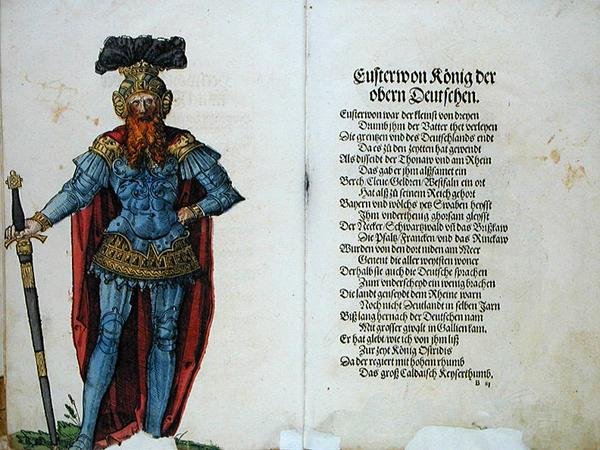 Eusterwon König der
obern Deutschen.
Eusterwon war der kleinst von dreyen
Drumb jhm der Vatter thet verleyen
Die grentzen vnd des Deutschlands endt
Da es zů den zeytten hat gewendt
Als disseidt der Thonaw vnd am Rhein
Das gab er jhm allsamet ein
Berch Cleue Geldren Westfaln ein ort
Hat alß zů seinem Reich gehort
Bayern vnd wölchs yetz Swaben heysst
Jhm vnderthenig ghorsam gleysst
Der Necker Schwartzwald vñ das Brißkaw
Die Pfaltz Francken vnd das Rinckaw
Wurden von den dort niden am Meer
Genent die aller weytsten woner
Derhalb sie auch die Deutsche sprachen
Zum vnderscheyd ein wenig brachen
Die landt genseydt dem Rheine warn
Noch nicht Zeutlandt in selben Jarn
Biß lang hernach der Deutschen nam
Mit grosser gwalt in Gallien kam.
Er hat glebt wie ich von jhm liß
Zur zeyt König Osiridis
Da der regiert mit hohem rhumb
Das groß Caldaisch Keyserthumb.
B iij